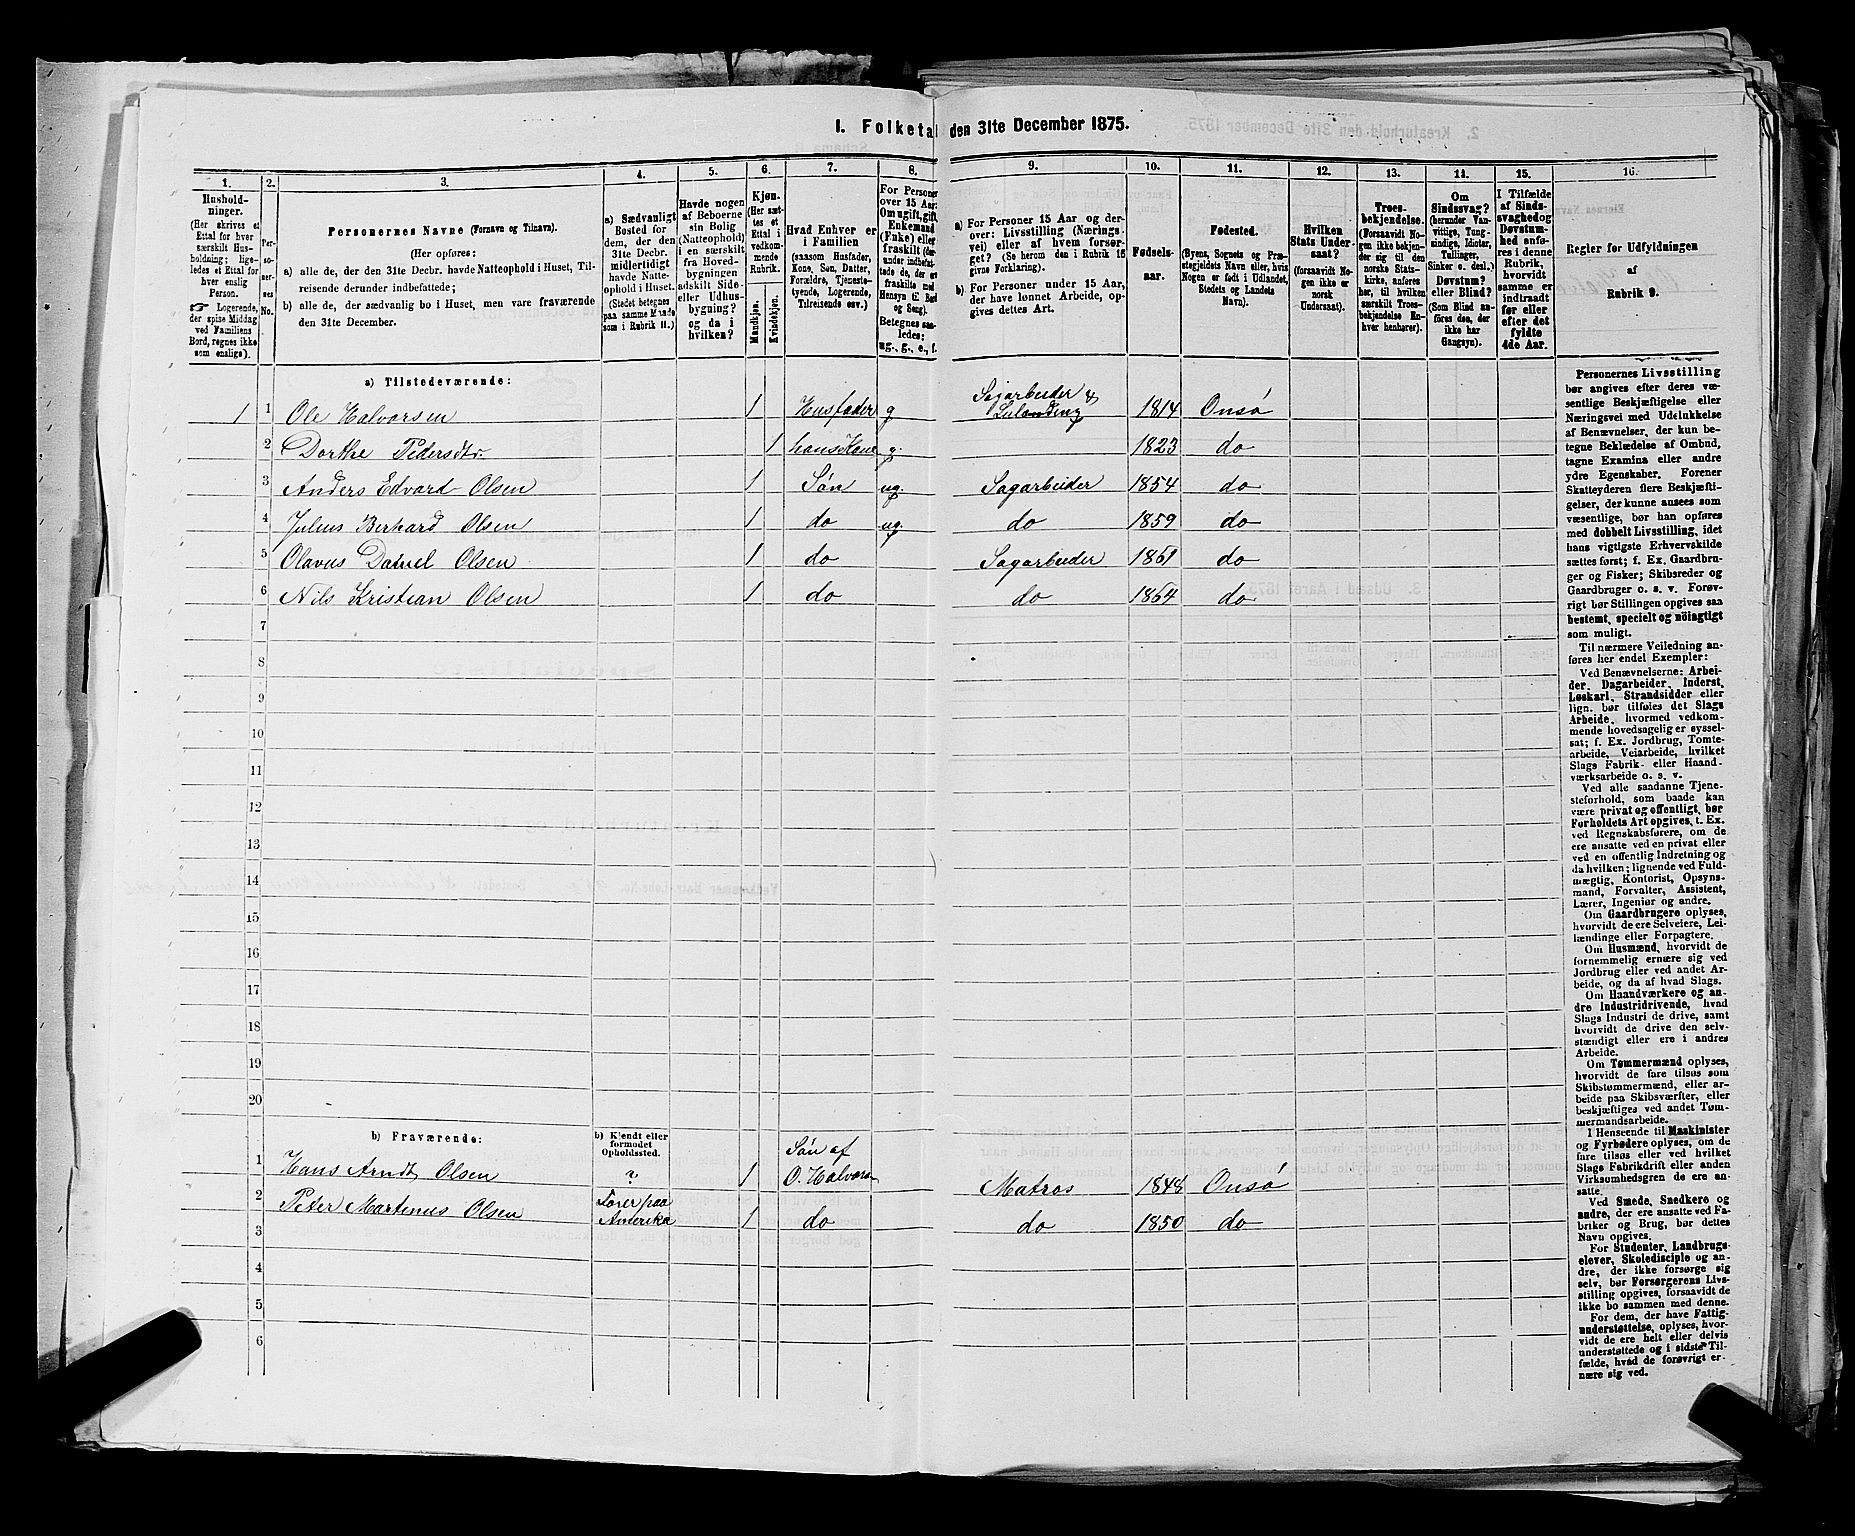 I. Folketa den 31te December 1875.
1. 2. 3. 4. 5. 6. 7. 8. 9. 10. 11. 12. 13. 14. 15. 16.
Hushold-
ninger.
(Her skrives et
Ettal for hver
særskilt Hus-
holdning; lige-
ledes et Ettal for
hver enslig
Person.
Logerende,
der spise Middag
ved Familiens
Bord, regnes ikke
som enslige).
Per-
soner-
nes
No.
Personernes Navne (Fornavn og Tilnavn).
(Her opføres:
a) alle de, der den 31te Decbr. havde Natteophold i Huset, Til-
reisende derunder indbefattede;
b) alle de, der sædvanlig bo i Huset, men vare fraværende
den 31te December.
a) Sædvanligt
Bosted for
dem, der den
31te Decbr.
midlertidigt
havde Natte-
ophold i Huset.
(Stedet betegnes
paa samme Maade
som i Rubrik 11.)
Havde nogen
af Beboerne
sin Bolig
(Natteophold)
i en særskilt
fra Hoved-
bygningen
adskilt Side-
eller Udhus-
bygning?
og da i
hvilken?
Kjøn.
(Her sæt-
tes et
Ettal i
vedkom-
mende
Rubrik.
Mandkjøn.
Kvindekjøn.
Hvad Enhver er
i Familien
(saasom Husfader,
Kone, Søn, Datter,
Forældre, Tjeneste-
tyende, Logerende,
Tilreisende osv.)
For Personer
over 15 Aar:
Om ugift, gift,
Enkemand
(Enke) eller
fraskilt (der-
under indbefat-
tede de, der er
fraskilte med
Hensyn til Bord
og Seng).
Betegnes saa-
ledes:
ug., g., e., f.
a) For Personer 15 Aar og der-
over: Livsstilling (Nærings-
vei) eller af hvem forsør-
get? (Se herom den i Rubrik 16
givne Forklaring).
b) For Personer under 15 Aar,
der have lønnet Arbeide, op-
gives dettes Art.
Fødsels-
aar.
Fødested.
(Byens, Sognets og Præ-
stegjeldets Navn eller, hvis
Nogen er født i Udlandet,
Stedets og Landets
Navn).
Hvilken
Stats Under-
saat?
(forsaavidt No-
gen ikke er
norsk
Undersaat).
Troes-
bekjendelse.
(Forsaavidt No-
gen ikke bekjen-
der sig til den
norske Stats-
kirke, anføres
her, til hvilken
særskilt Troes-
bekjendelse En-
hver henhører).
Om
Sindssvag?
(herunder Van-
vittige, Tung-
sindige, Idioter,
Tullinger,
Sinker o. desl.)
Døvstum?
eller Blind?
(Som Blind an-
føres den, der
ikke har
Gangsyn).
I Tilfælde
af Sinds-
svaghed og
Døvstum-
hed anfø-
res i denne
Rubrik,
hvorvidt
samme er
indtraadt
før eller
efter det
fyldte
4de Aar.
Regler for Udfyldningen
af
Rubrik 9.
a) Tilstedeværende:
1 1 Ole Halvorsen 1 Husfader g Sagarbeider & 1814 Onsø
2 Dorthe Pedersdtr. 1 hans Kone g. 1823 do
3 Anders Edvard Olsen 1 Søn ug. Sagarbeider 1854 do
4 Julius Berhard Olsen 1 do ug. do 1859 do
5 Olavus Daniel Olsen 1 do Sagarbeider 1861 do
6 Nils Kristian Olsen 1 do do 1864 do
7
8
9
10
11
12
13
14
15
16
17
18
19
20
b) Fraværende:
b) Kjendt eller
formodet
Opholdssted.
1 Hans Arndt Olsen ? 1 Søn af O. Halvorsen Matros 1848 Onsø
2 Peter Martinus Olsen Farer paa Amerika 1 do do 1850 do
3
4
5
6
Personernes Livsstilling
bør angives efter deres væ-
sentlige Beskjæftigelse eller
Næringsvei med Udelukkelse
af Benævnelser, der kun be-
tegne Beklædelse af Ombud,
tagne Examina eller andre
ydre Egenskaber. Forener
Skatteyderen flere Beskjæfti-
gelser, der kunne ansees som
væsentlige, bør han opføres
med dobbelt Livsstilling, idet
hans vigtigste Erhvervskilde
sættes først; f. Ex. Gaardbru-
ger og Fisker; Skibsreder og
Gaardbruger o. s. v. Forøv-
rigt bør Stillingen opgives saa
bestemt, specielt og nöiagtigt
som muligt.
Til nærmere Veiledning an-
føres her endel Exempler:
Ved Benævnelserne: Arbei-
der, Dagarbeider, Inderst,
Løskarl, Strandsidder eller
lign. bør tilføies det Slags
Arbeide, hvormed vedkom-
mende hovedsagelig er syssel-
sat; f. Ex. Jordbrug, Tomte-
arbeide, Veiarbeide, hvilket
Slags Fabrik- eller Haand-
værksarbeide o. s. v.
Ved alle saadanne Tjene-
steforhold, som baade kan
være privat og offentligt, bør
Forholdets Art opgives, t. Ex.
ved Regnskabsførere, om de
ere ansatte ved en privat eller
ved en offentlig Indretning og
da hvilken; lignende ved Fuld-
mægtig, Kontorist, Opsyns-
mand, Forvalter, Assistent,
Lærer, Ingeniør og andre.
Om Gaardbrugere oplyses,
hvorvidt de ere Selveiere, Lei-
lændinge eller Forpagtere.
Om Husmænd, hvorvidt de
fornemmelig ernære sig ved
Jordbrug eller ved andet Ar-
beide, og da af hvad Slags.
Om Haandværkere og an-
dre Industridrivende, hvad
Slags Industri de drive, samt
hvorvidt de drive den selv-
stændigt eller ere i andres
Arbeide.
Om Tømmermænd oplyses,
hvorvidt de fare tilsøs som
Skibstømmermænd, eller ar-
beide paa Skibsværfter, eller
beskjæftiges ved andet Tøm-
mermandsarbeide.
I Henseende til Maskinister
og Fyrbødere oplyses, om de
fare tilsøs eller ved hvilket
Slags Fabrikdrift eller anden
Virksomhedsgren de ere an-
satte.
Ved Smede, Snedkere og
andre, der ere ansatte ved Fa-
briker og Brug, bør dettes
Navn opgives.
For Studenter, Landbrugs-
elever, Skoledisciple og an-
dre, der ikke forsørge sig
selv, bør Forsørgerens Livs-
stilling opgives, forsaavidt de
ikke bo sammen med denne.
For dem, der have Fattig-
understøttelse, oplyses, hvor-
vidt de ere helt eller delvis
understøttede og i sidste Til-
fælde, hvad de forøvrigt er-
nære sig ved.